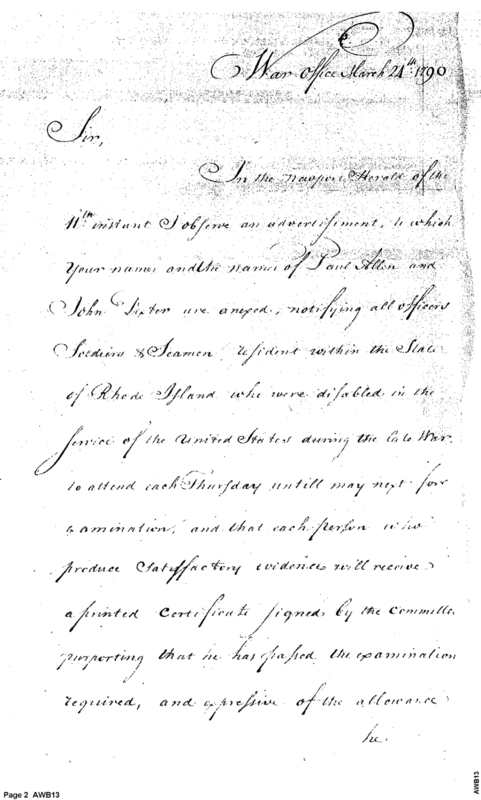 War Office March 21th 1790
Sir,
In the Newport Herald of the
11th instant I observe an advertisement, to which
Your names and the names of Paul Allen and
John are anexed, notifying all officers
Soldiers & Seamen resident within the State
of Rhode Island who were disabled in the
service of the United States during the late War
to attend each Thursday untill may next for
examination, and that each person who
produce Satisfactory evidence will receive
a printed Certificate signed by the Committee
purporting that he has passed the examination
required, and expressive of the allowance
he
Page 2 AWB13
AWB13